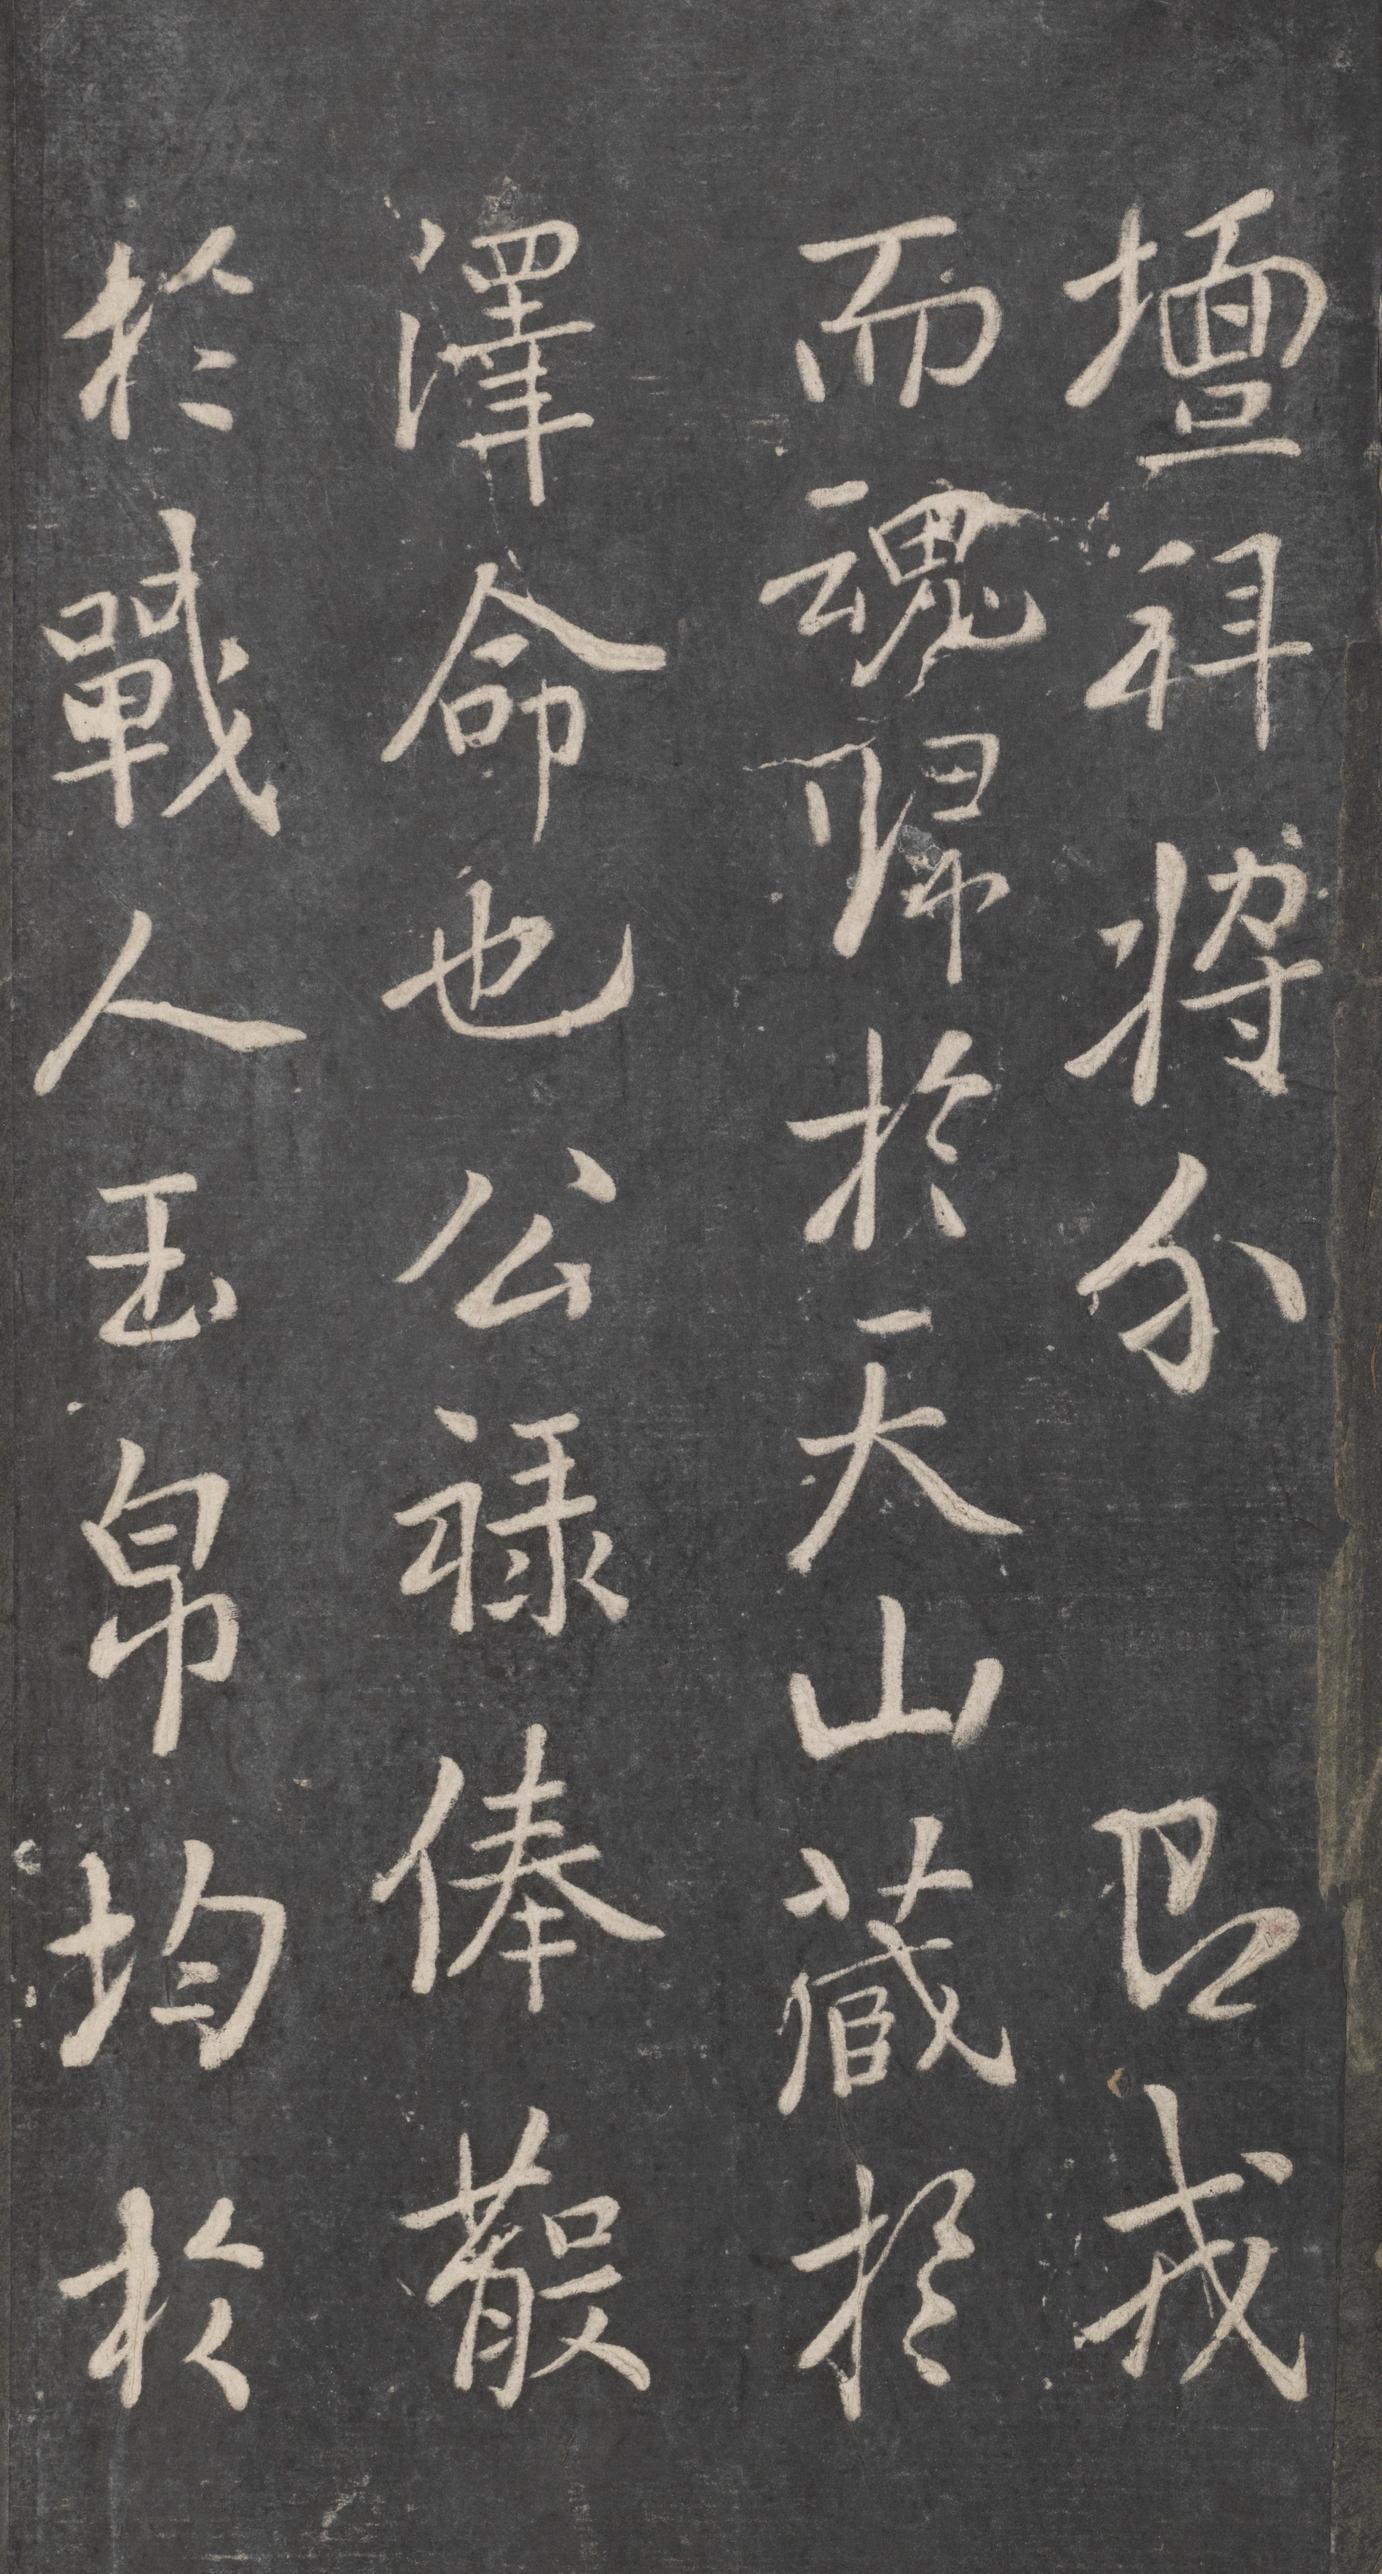 壇科將分戎
而魂歸於天山藏於
澤命也公祿俸散
於戰人玉帛均於